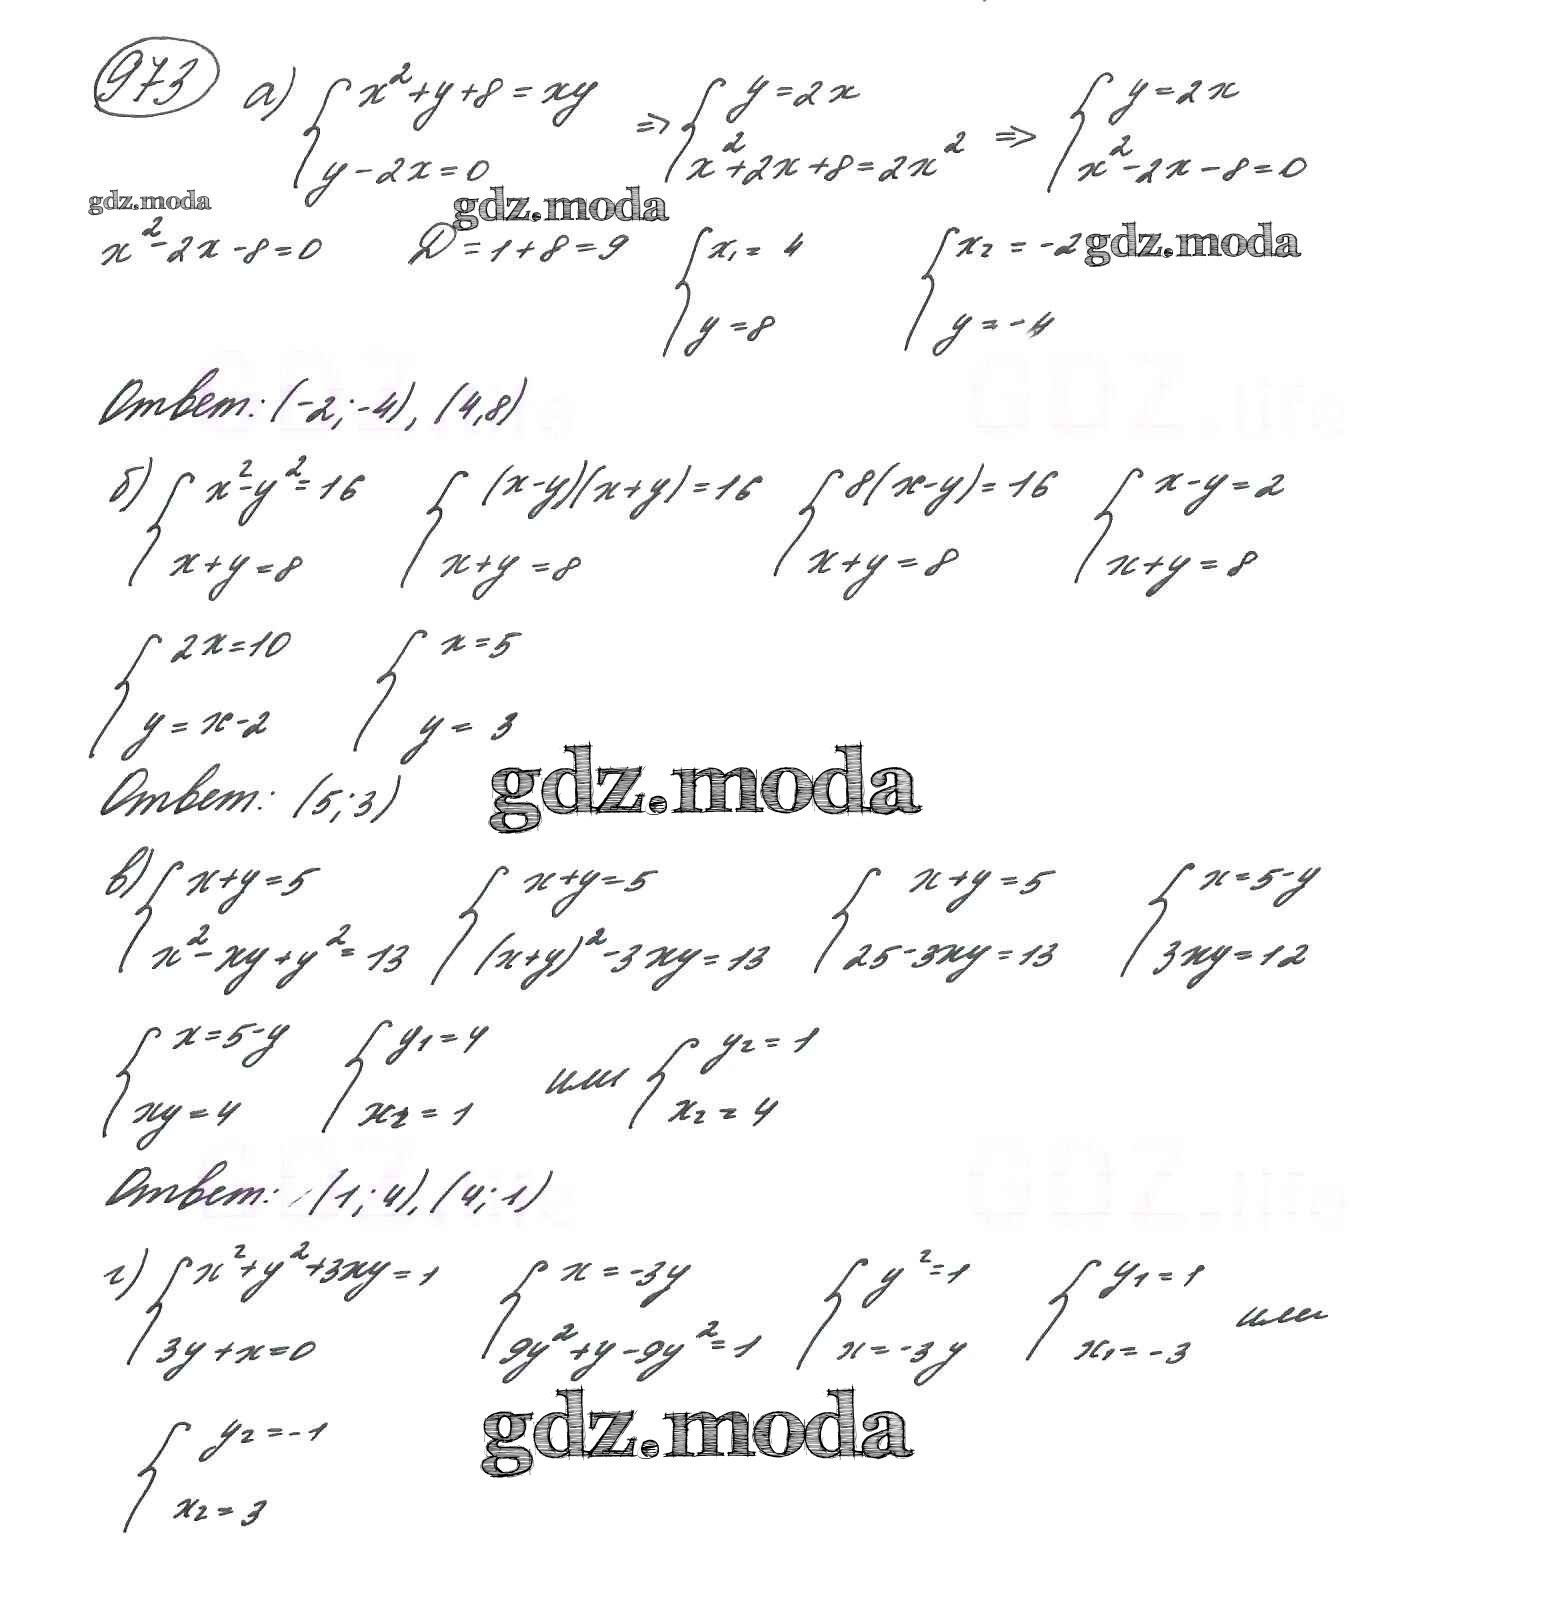 973 а) { x²+y+8=xy ; y-2x=0 => { y=2x ; x²+2x+8=2x² => { y=2x ; x²-2x-8=0
gdz.moda gdz.moda gdz.moda
x²-2x-8=0 D=1+8=9 { x₁=4 ; y=8 { x₂=-2 ; y=-4
GDZ.life GDZ.life
Ответ: (-2;-4), (4,8)
б) { x²-y²=16 ; x+y=8 { (x-y)(x+y)=16 ; x+y=8 { 8(x-y)=16 ; x+y=8 { x-y=2 ; x+y=8
{ 2x=10 ; y=x-2 { x=5 ; y=3
Ответ: (5;3)
gdz.moda
в) { x+y=5 ; x²-xy+y²=13 { x+y=5 ; (x+y)²-3xy=13 { x+y=5 ; 25-3xy=13 { x=5-y ; 3xy=12
{ x=5-y ; xy=4 { y₁=4 ; x₂=1 или { y₂=1 ; x₂=4
Ответ: (1;4), (4;1)
GDZ.life GDZ.life
г) { x²+y²+3xy=1 ; 3y+x=0 { x=-3y ; 9y²+y-9y²=1 { y²=1 ; x=-3y { y₁=1 ; x₁=-3 или
gdz.moda
{ y₂=-1 ; x₂=3